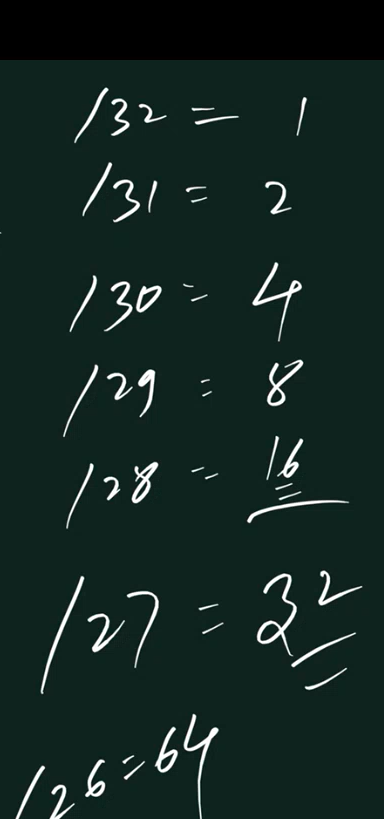 /32 = 1
/31 = 2
/30 = 4
/29 = 8
/28 = 16
/27 = 32
/26 = 64